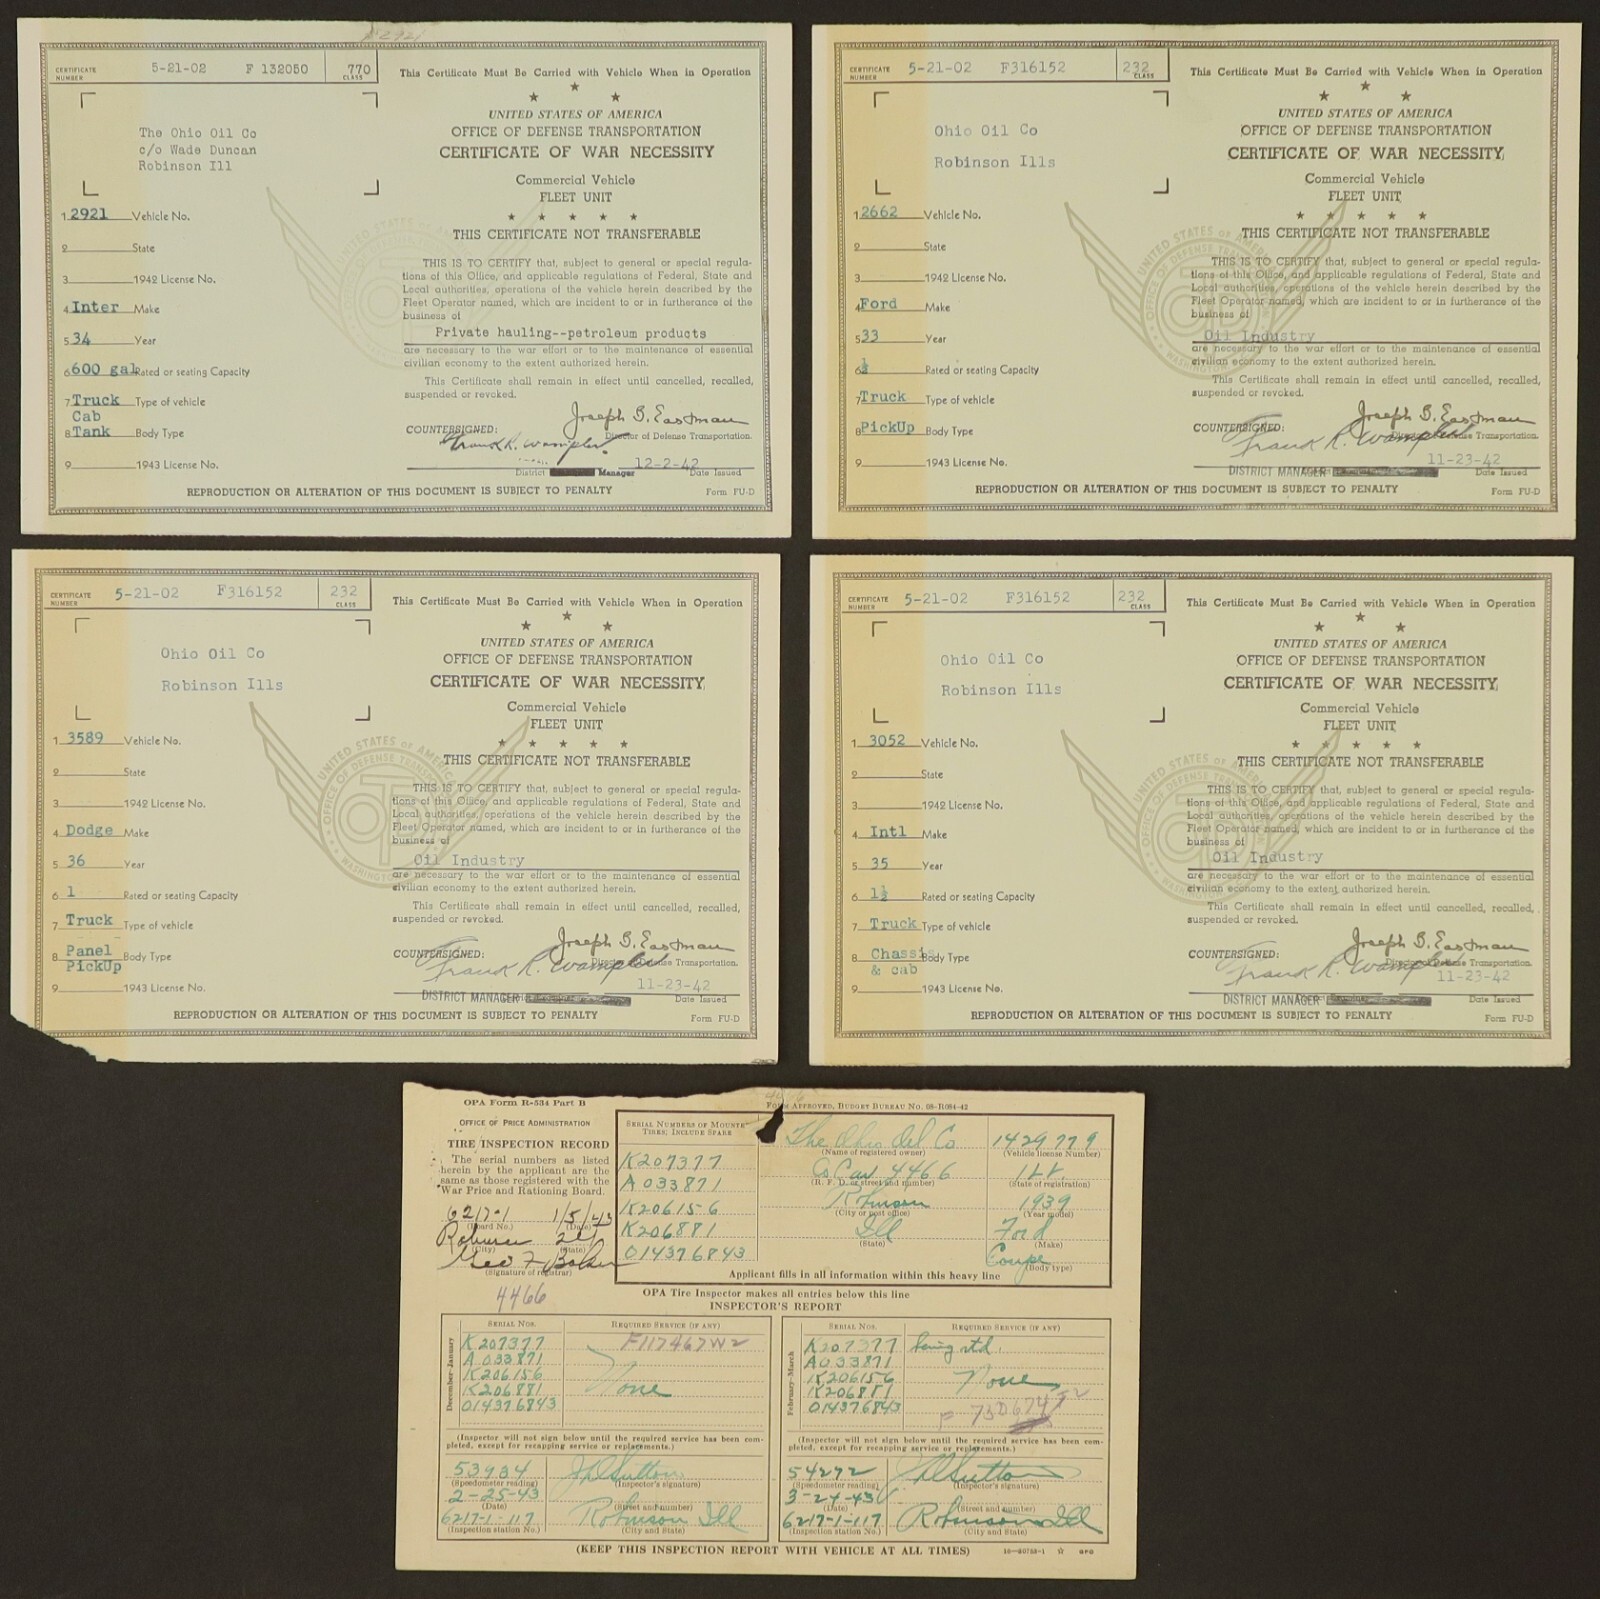 #2921
CERTIFICATE NUMBER 5-21-02 F 132050 770 CLASS
The Ohio Oil Co
c/o Wade Duncan
Robinson Ill
1 2921 Vehicle No.
2 State
3 1942 License No.
4 Inter Make
5 34 Year
6 600 gal Rated or seating Capacity
7 Truck Type of vehicle
Cab
8 Tank Body Type
9 1943 License No.
This Certificate Must Be Carried with Vehicle When in Operation
UNITED STATES OF AMERICA
OFFICE OF DEFENSE TRANSPORTATION
CERTIFICATE OF WAR NECESSITY
Commercial Vehicle
FLEET UNIT
THIS CERTIFICATE NOT TRANSFERABLE
THIS IS TO CERTIFY that, subject to general or special regula-
tions of this Office, and applicable regulations of Federal, State and
Local authorities, operations of the vehicle herein described by the
Fleet Operator named, which are incident to or in furtherance of the
business of
Private hauling--petroleum products
are necessary to the war effort or to the maintenance of essential
civilian economy to the extent authorized herein.
This Certificate shall remain in effect until cancelled, recalled,
suspended or revoked.
Joseph B. Eastman
COUNTERSIGNED: Director of Defense Transportation.
Frank R. Wampler
12-2-42
District Manager Date Issued
REPRODUCTION OR ALTERATION OF THIS DOCUMENT IS SUBJECT TO PENALTY
Form FU-D
CERTIFICATE NUMBER 5-21-02 F316152 232 CLASS
Ohio Oil Co
Robinson Ills
1 2662 Vehicle No.
2 State
3 1942 License No.
4 Ford Make
5 33 Year
6 ½ Rated or seating Capacity
7 Truck Type of vehicle
8 PickUp Body Type
9 1943 License No.
This Certificate Must Be Carried with Vehicle When in Operation
UNITED STATES OF AMERICA
OFFICE OF DEFENSE TRANSPORTATION
CERTIFICATE OF WAR NECESSITY
Commercial Vehicle
FLEET UNIT
THIS CERTIFICATE NOT TRANSFERABLE
THIS IS TO CERTIFY that, subject to general or special regula-
tions of this Office, and applicable regulations of Federal, State and
Local authorities, operations of the vehicle herein described by the
Fleet Operator named, which are incident to or in furtherance of the
business of
Oil Industry
are necessary to the war effort or to the maintenance of essential
civilian economy to the extent authorized herein.
This Certificate shall remain in effect until cancelled, recalled,
suspended or revoked.
Joseph B. Eastman
COUNTERSIGNED: Director of Defense Transportation.
Frank R. Wampler
11-23-42
DISTRICT MANAGER Date Issued
REPRODUCTION OR ALTERATION OF THIS DOCUMENT IS SUBJECT TO PENALTY
Form FU-D
CERTIFICATE NUMBER 5-21-02 F316152 232 CLASS
Ohio Oil Co
Robinson Ills
1 3589 Vehicle No.
2 State
3 1942 License No.
4 Dodge Make
5 36 Year
6 1 Rated or seating Capacity
7 Truck Type of vehicle
8 Panel Body Type
PickUp
9 1943 License No.
This Certificate Must Be Carried with Vehicle When in Operation
UNITED STATES OF AMERICA
OFFICE OF DEFENSE TRANSPORTATION
CERTIFICATE OF WAR NECESSITY
Commercial Vehicle
FLEET UNIT
THIS CERTIFICATE NOT TRANSFERABLE
THIS IS TO CERTIFY that, subject to general or special regula-
tions of this Office, and applicable regulations of Federal, State and
Local authorities, operations of the vehicle herein described by the
Fleet Operator named, which are incident to or in furtherance of the
business of
Oil Industry
are necessary to the war effort or to the maintenance of essential
civilian economy to the extent authorized herein.
This Certificate shall remain in effect until cancelled, recalled,
suspended or revoked.
Joseph B. Eastman
COUNTERSIGNED: Director of Defense Transportation.
Frank R. Wampler
11-23-42
DISTRICT MANAGER Date Issued
REPRODUCTION OR ALTERATION OF THIS DOCUMENT IS SUBJECT TO PENALTY
Form FU-D
UNITED STATES OF AMERICA
OFFICE OF DEFENSE TRANSPORTATION
ODT
WASHINGTON
CERTIFICATE NUMBER 5-21-02 F316152 232 CLASS
Ohio Oil Co
Robinson Ills
1 3052 Vehicle No.
2 State
3 1942 License No.
4 Intl Make
5 35 Year
6 1½ Rated or seating Capacity
7 Truck Type of vehicle
8 Chassis Body Type
& cab
9 1943 License No.
This Certificate Must Be Carried with Vehicle When in Operation
UNITED STATES OF AMERICA
OFFICE OF DEFENSE TRANSPORTATION
CERTIFICATE OF WAR NECESSITY
Commercial Vehicle
FLEET UNIT
THIS CERTIFICATE NOT TRANSFERABLE
THIS IS TO CERTIFY that, subject to general or special regula-
tions of this Office, and applicable regulations of Federal, State and
Local authorities, operations of the vehicle herein described by the
Fleet Operator named, which are incident to or in furtherance of the
business of
Oil Industry
are necessary to the war effort or to the maintenance of essential
civilian economy to the extent authorized herein.
This Certificate shall remain in effect until cancelled, recalled,
suspended or revoked.
Joseph B. Eastman
COUNTERSIGNED: Director of Defense Transportation.
Frank R. Wampler
11-23-42
DISTRICT MANAGER Date Issued
REPRODUCTION OR ALTERATION OF THIS DOCUMENT IS SUBJECT TO PENALTY
Form FU-D
OPA Form R-534 Part B
Form Approved, Budget Bureau No. 08-R084-42
OFFICE OF PRICE ADMINISTRATION
TIRE INSPECTION RECORD
The serial numbers as listed
herein by the applicant are the
same as those registered with the
War Price and Rationing Board.
6217-1 1/5/43
(Board No.) (Date)
Robinson Ill
(City) (State)
Geo F
(Signature of registrar)
4466
Serial Numbers of Mounted
Tires; Include Spare
K207377
A033871
K206156
K206881
014376843
The Ohio Oil Co
(Name of registered owner)
Co Car 4466
(R. F. D. or street and number)
Robinson
(City or post office)
Ill
(State)
1429779
(Vehicle license Number)
Ill.
(State of registration)
1939
(Year model)
Ford
(Make)
Coupe
(Body type)
Applicant fills in all information within this heavy line
OPA Tire Inspector makes all entries below this line
INSPECTOR'S REPORT
December-January
Serial Nos. Required Service (if any)
K207377 F117467W2
A033871
K206156 None
K206881
014376843
(Inspector will not sign below until the required service has been com-
pleted, except for recapping service or replacements.)
53934 Sutton
(Speedometer reading) (Inspector's signature)
2-25-43
(Date) (Street and number)
6217-1-117 Robinson Ill
(Inspection station No.) (City and State)
February-March
Serial Nos. Required Service (if any)
K207377
A033871
K206156 None
K206881
014376843
(Inspector will not sign below until the required service has been com-
pleted, except for recapping service or replacements.)
54272 Sutton
(Speedometer reading) (Inspector's signature)
3-24-43
(Date) (Street and number)
6217-1-117 Robinson Ill
(Inspection station No.) (City and State)
(KEEP THIS INSPECTION REPORT WITH VEHICLE AT ALL TIMES)
16—30753-1 GPO